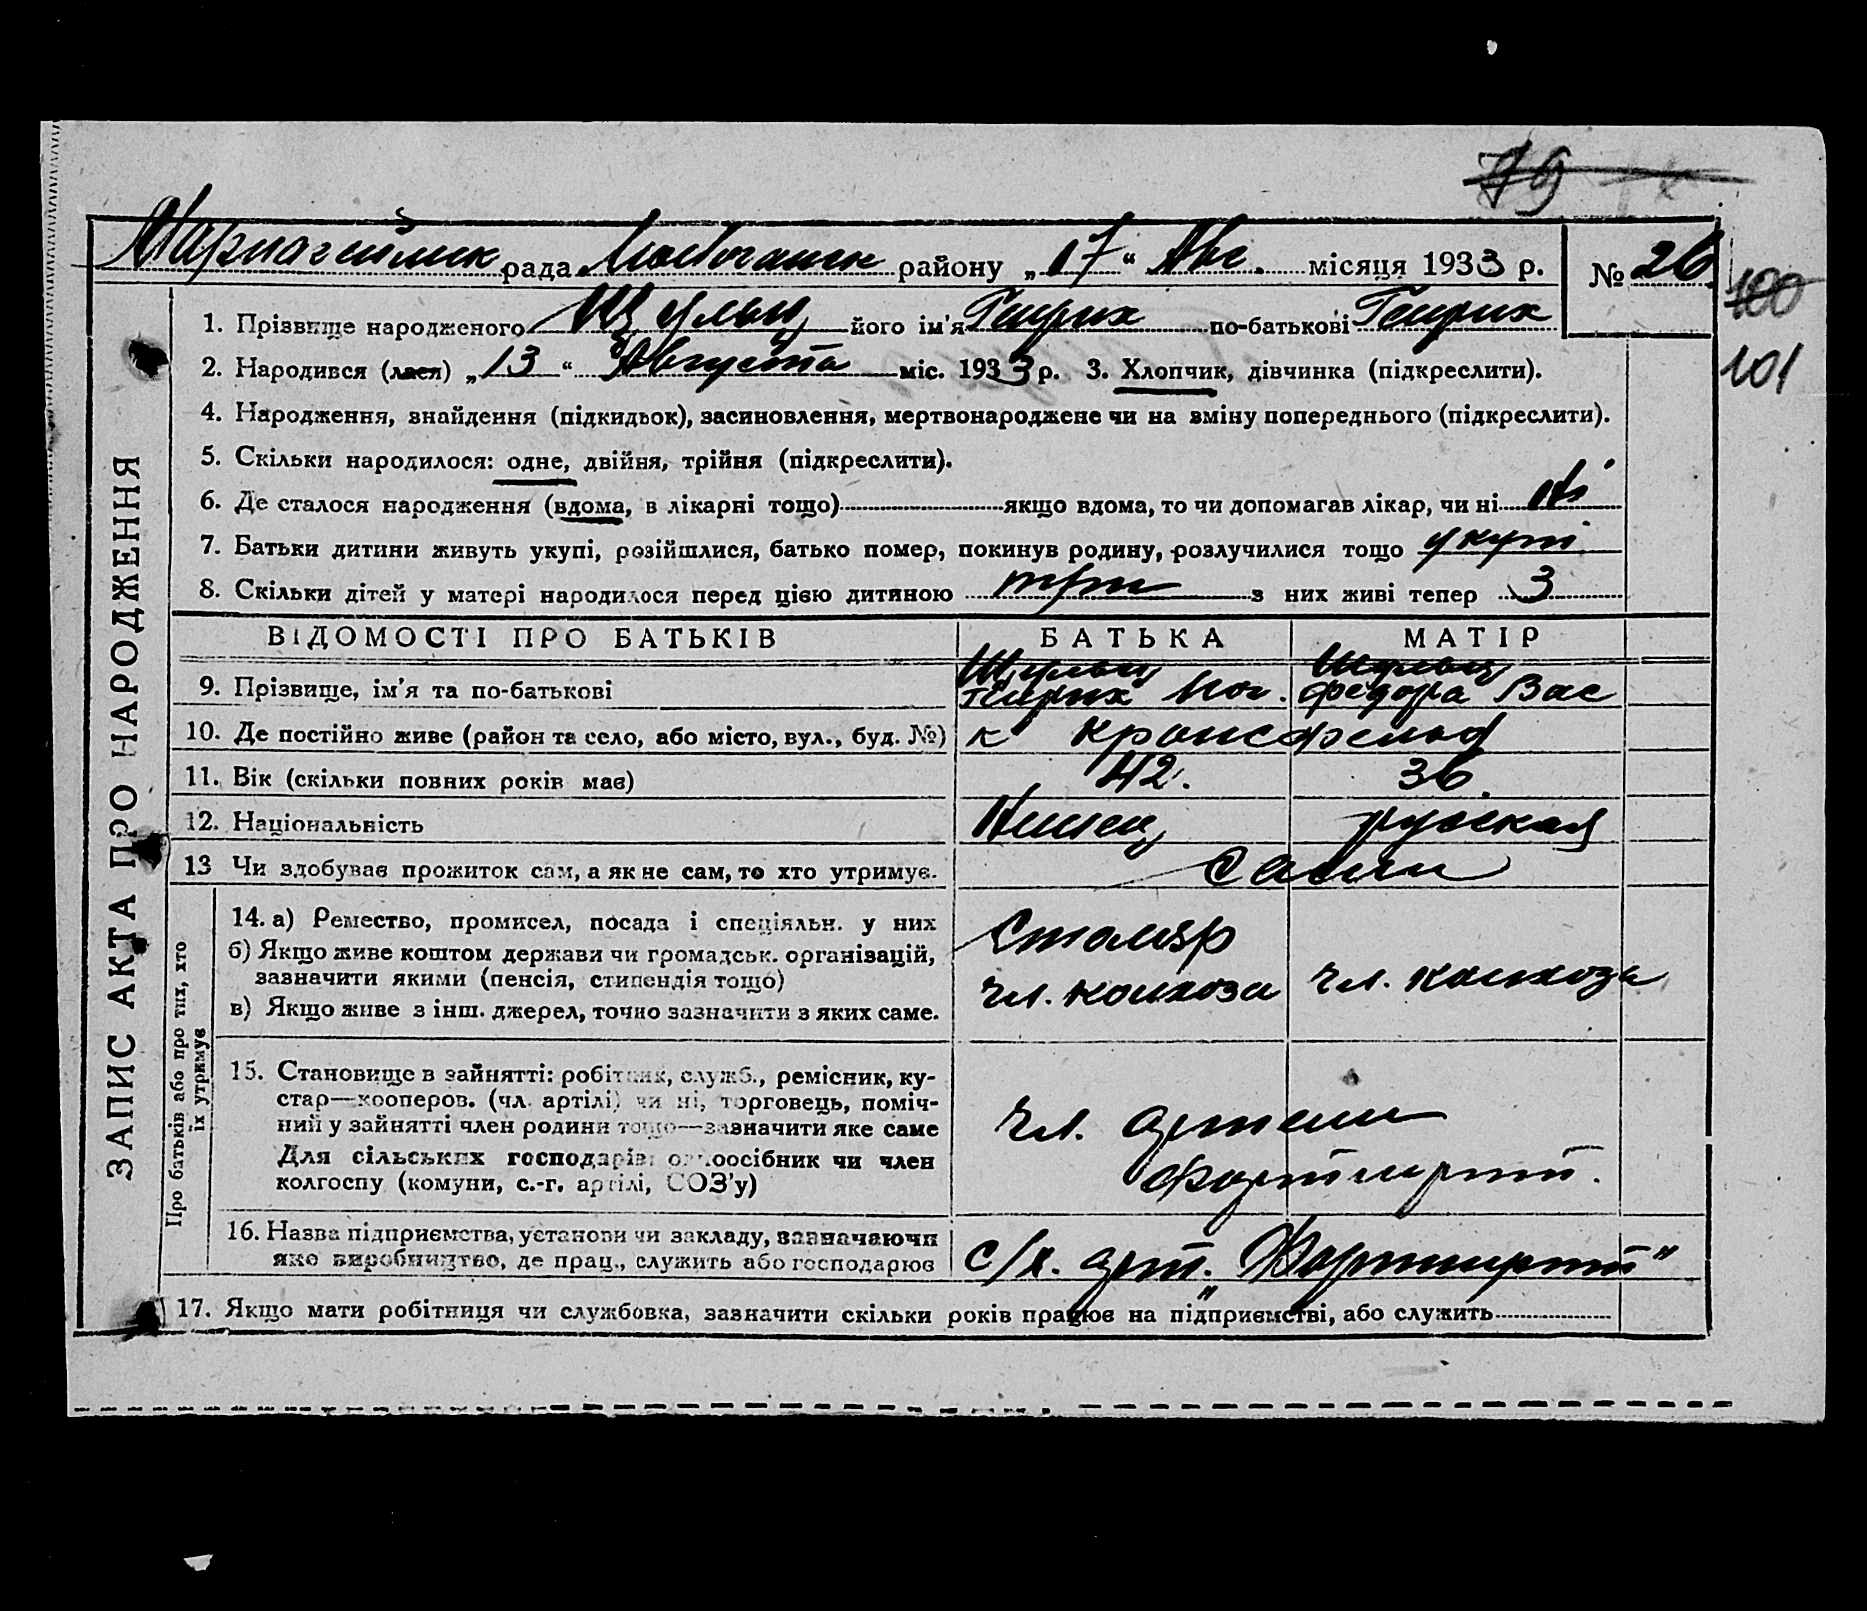 79
рада района „17“ Авг. місяця 1933 р. № 26
100
1. Прізвище народженого Шульц його ім'я Генрих по-батькові Генрих
2. Народився (лася) „13“ Августа міс. 1933 р. 3. Хлопчик, дівчинка (підкреслити).
101
4. Народження, знайдення (підкидьок), засиновлення, мертвонароджене чи на зміну попереднього (підкреслити).
5. Скільки народилося: одне, двійня, трійня (підкреслити).
6. Де сталося народження (вдома, в лікарні тощо) якщо вдома, то чи допомагав лікар, чи ні ні
7. Батьки дитини живуть укупі, розійшлися, батько помер, покинув родину, розлучилися тощо укупі
8. Скільки дітей у матері народилося перед цією дитиною три з них живі тепер 3
ЗАПИС АКТА ПРО НАРОДЖЕННЯ
ВІДОМОСТІ ПРО БАТЬКІВ БАТЬКА МАТІР
Шульц Шульц
9. Прізвище, ім'я та по-батькові Генрих Федора Вас
10. Де постійно живе (район та село, або місто, вул., буд. №) к Кронсфельд
11. Вік (скільки повних років має) 42. 36.
12. Національність Немец руская
13 Чи здобуває прожиток сам, а як не сам, то хто утримує. Сами
Про батьків або про тих, хто
їх утримує
14. а) Ремество, промисел, посада і спеціяльн. у них Столяр
б) Якщо живе коштом держави чи громадськ. організацій,
зазначити якими (пенсія, стипендія тощо) чл. колхоза чл. колхоза
в) Якщо живе з інш. джерел, точно зазначити з яких саме.
15. Становище в зайнятті: робітник, служб., ремісник, ку-
стар—кооперов. (чл. артілі) чи ні, торговець, поміч-
ний у зайнятті член родини тощо—зазначити яке саме чл. артели
Для сільських господарів: одноосібник чи член
колгоспу (комуни, с.-г. артілі, СОЗ'у) Фортширтт.
16. Назва підприємства, установи чи закладу, зазначаючи
яке виробництво, де прац., служить або господарює с/х. арт. „Фортширтт"
17. Якщо мати робітниця чи службовка, зазначити скільки років працює на підприємстві, або служить